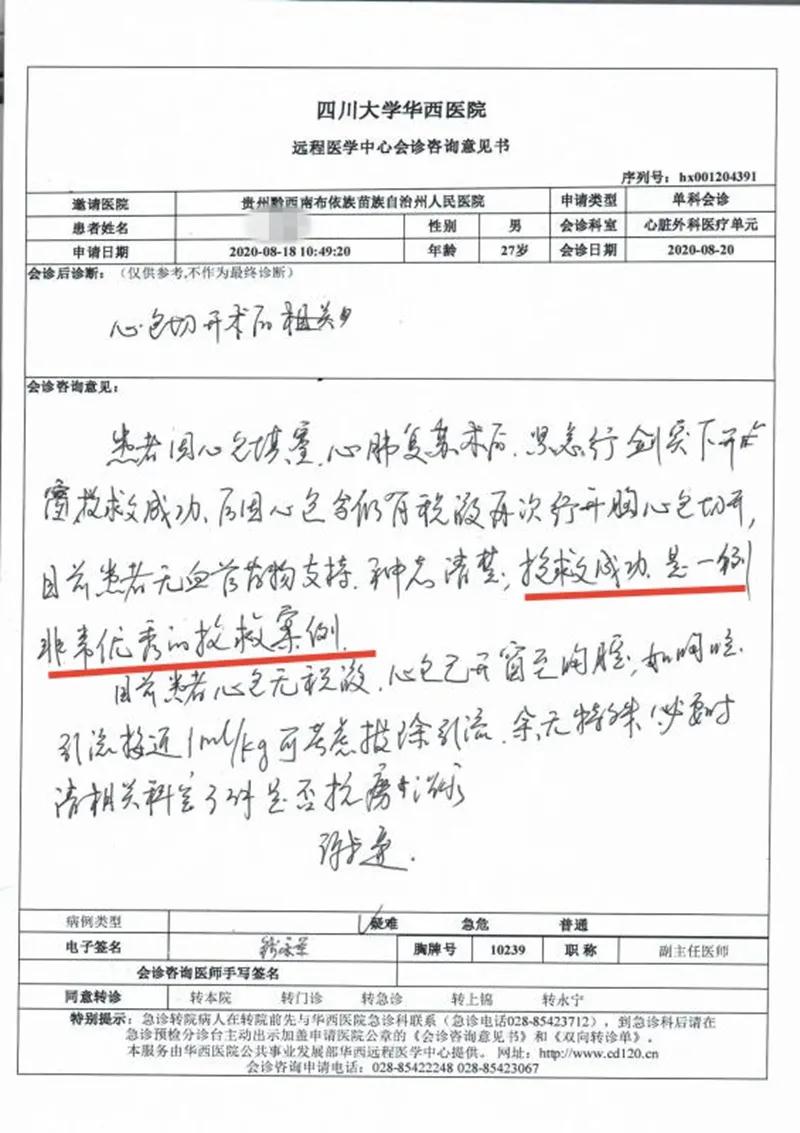 四川大学华西医院
远程医学中心会诊咨询意见书
序列号：hx001204391
邀请医院 贵州黔西南布依族苗族自治州人民医院 申请类型 单科会诊
患者姓名 性别 男 会诊科室 心脏外科医疗单元
申请日期 2020-08-18 10:49:20 年龄 27岁 会诊日期 2020-08-20
会诊后诊断：（仅供参考,不作为最终诊断）
心包切开术后
会诊咨询意见：
患者因心包填塞,心肺复苏术后,紧急行剑突下开
窗救救成功,后因心包仍有积液再次行开胸心包切开,
目前患者无血管药物支持,神志清楚,抢救成功.是一例
非常优秀的抢救案例.
目前患者心包无积液,心包已开窗至胸腔,如胸腔
引流接近1ml/kg可考虑拔除引流.余无特殊,必要时
请相关科室 是否抗痨治疗
病例类型 疑难 急危 普通
电子签名 胸牌号 10239 职称 副主任医师
会诊咨询医师手写签名
同意转诊 转本院 转门诊 转急诊 转上锦 转永宁
特别提示：急诊转院病人在转院前先与华西医院急诊科联系（急诊电话028-85423712），到急诊科后请在
急诊预检分诊台主动出示加盖申请医院公章的《会诊咨询意见书》和《双向转诊单》。
本服务由华西医院公共事业发展部华西远程医学中心提供。 网址：http://www.cd120.cn
会诊咨询申请电话：028-85422248 028-85423067